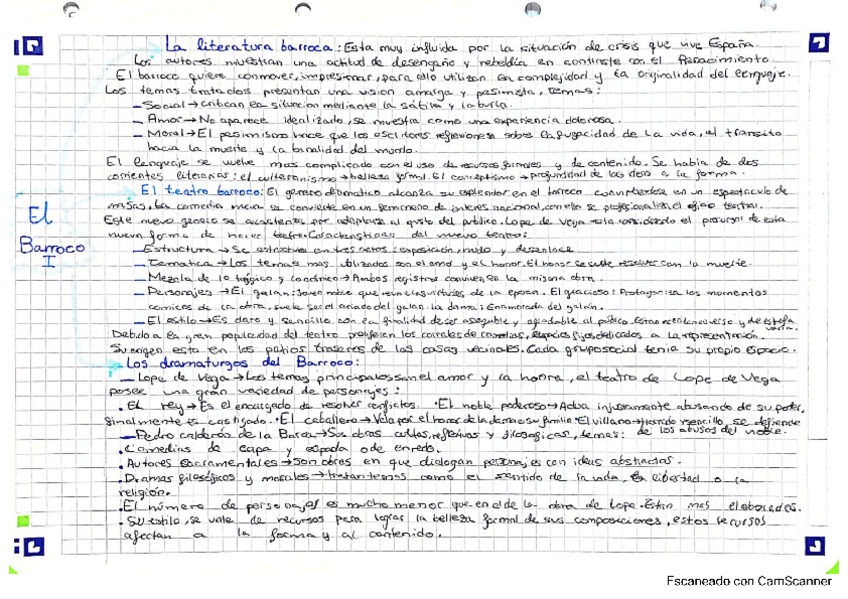 La literatura barroca: Esta muy influida por la situación de crisis que vive España.
Los autores muestran una actitud de desengaño y rebeldía en contraste con el Renacimiento.
El barroco quiere conmover, impresionar, para ello utilizan la complejidad y la originalidad del lenguaje.
Los temas tratados presentan una vision amarga y pesimista, temas:
- Social → critican la situacion mediante la sátira y la burla.
- Amor → No aparece idealizado, se muestra como una experiencia dolorosa.
- Moral → El pesimismo hace que los escritores reflexionen sobre la fugacidad de la vida, el transito
hacia la muerte y la banalidad del mundo.
El lenguaje se vuelve mas complicado con el uso de recursos formales y de contenido. Se habla de dos
corrientes literarias: el culteranismo → belleza formal. El conceptismo → profundidad de las ideas a la forma.
El teatro barroco: El género dramatico alcanza su esplendor en el barroco convirtiendose en un espectaculo de
masas. La comedia nueva se convierte en un fenomeno de interés nacional, con ella se profesionaliza el oficio teatral.
Este nuevo genero se caracteriza por adaptarse al gusto del publico. Lope de Vega esta considerado el precursor de esta
nueva forma de hacer teatro. Características del nuevo teatro:
El
Barroco
I
- Estructura → Se estructura en tres actos: exposición, nudo y desenlace
- Tematica → Los temas mas utilizados son el amor y el honor. El honor se suele resolver con la muerte.
- Mezcla de lo trágico y lo cómico → Ambos registros conviven en la misma obra.
- Personajes → El galan: Joven noble que reune las virtudes de la epoca. El gracioso: Protagoniza los momentos
comicos de la obra, suele ser el criado del galan. La dama: Enamorada del galán.
- El estilo → Es claro y sencillo con la finalidad de ser asequible y agradable al público. Estan escritas en verso y de estrofa
varia.
Debido a la gran popularidad del teatro proliferan los corrales de comedias, espacios fijos dedicados a la representación.
Su origen esta en los patios traseros de las casas vecinales. Cada grupo social tenia su propio espacio.
Los dramaturgos del Barroco:
- Lope de Vega → Los temas principales son el amor y la honra, el teatro de Lope de Vega
posee una gran variedad de personajes:
• El rey → Es el encargado de resolver conflictos. • El noble poderoso → Actua injustamente abusando de su poder,
finalmente es castigado. • El caballero → Vela por el honor de la dama o su familia. El villano → Honrado y sencillo, se defiende
de los abusos del noble.
- Pedro calderón de la Barca → Sus obras cultas, reflexivas y filosoficas, temas:
• Comedias de capa y espada o de enredo.
• Autores sacramentales → Son obras en que dialogan personajes con ideas abstractas.
• Dramas filosóficos y morales → tratan temas como el sentido de la vida, la libertad o la
religión.
• El número de personajes es mucho menor que en el de la obra de Lope. Estan mas elaborados.
• Su estilo, se vale de recursos para lograr la belleza formal de sus composiciones, estos recursos
afectan a la forma y al contenido.
Escaneado con CamScanner